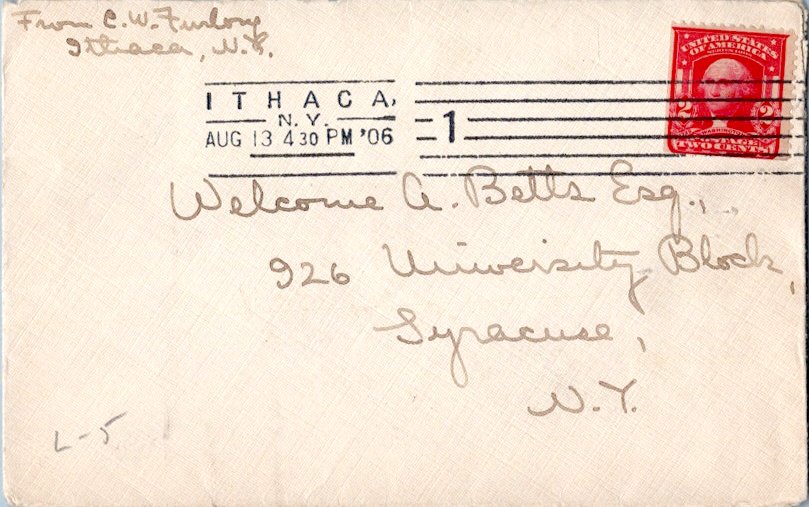 From C. W. Furlong
Ithaca, N.Y.
UNITED STATES
OF AMERICA
ITHACA,
N.Y.
AUG 13 4 30 PM '06
1
2 2
WASHINGTON
POSTAGE
TWO CENTS
Welcome A. Betts Esq.,
926 University Block,
Syracuse,
N.Y.
L-5